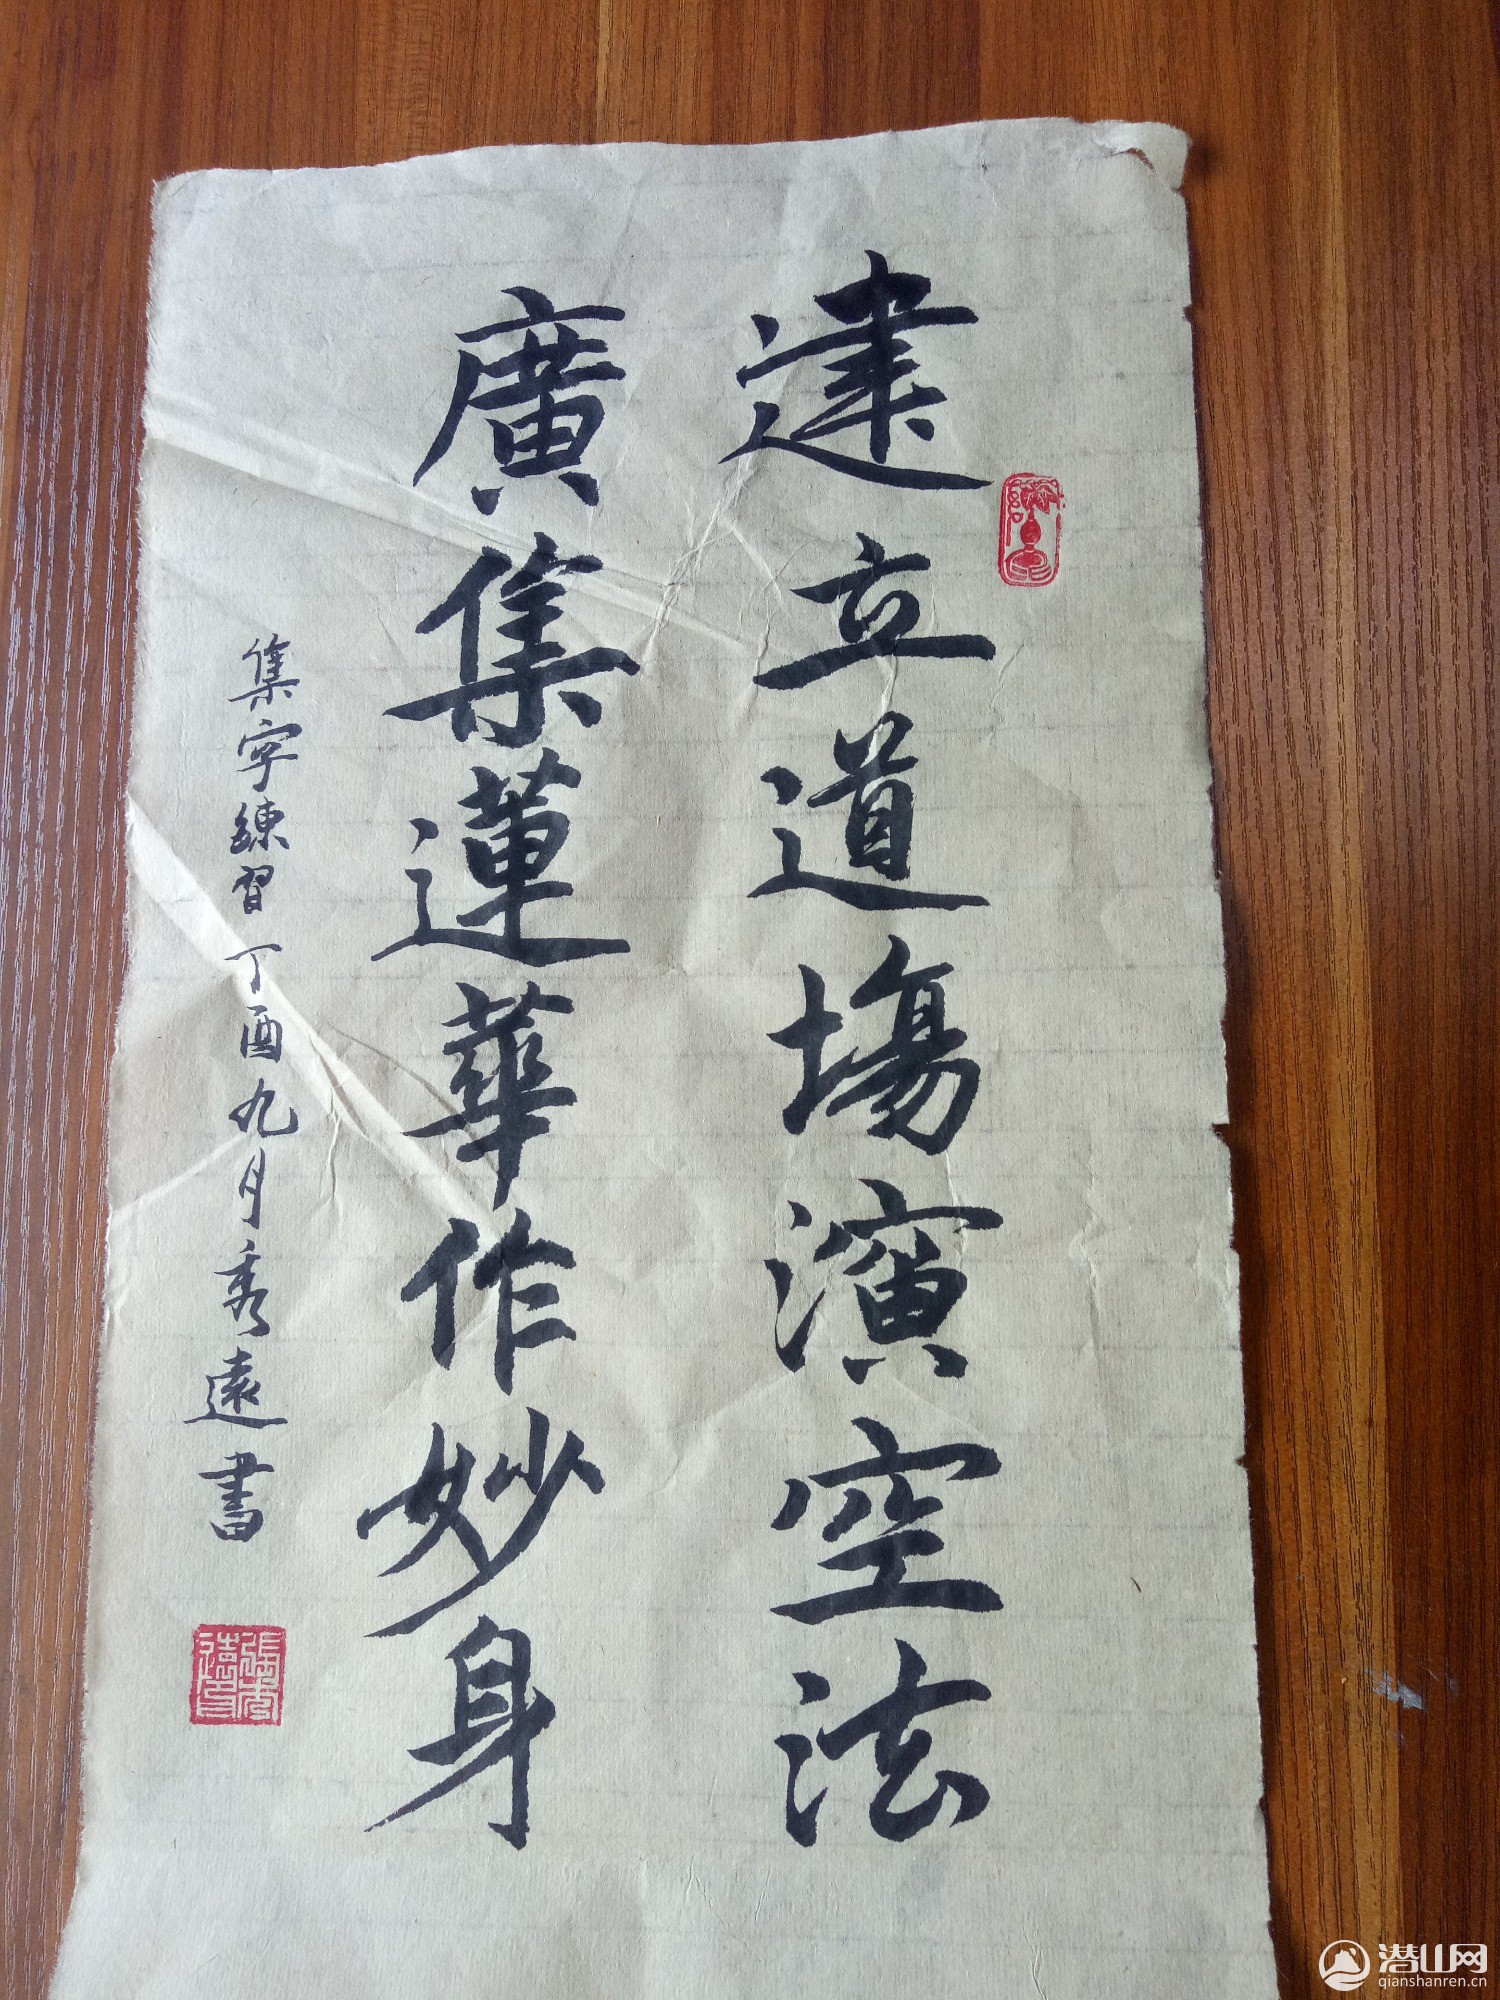 建立道場演空法
廣集蓮華作妙身
集字練習 丁酉九月秀遠書
張秀遠印
潜山网
qianshanren.cn